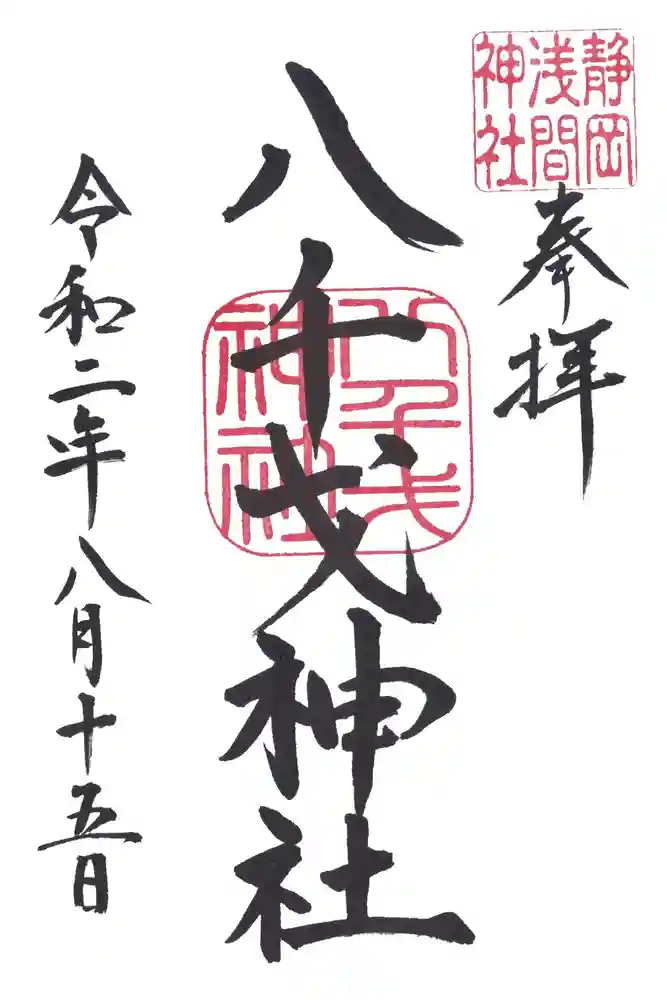 静岡
浅間
神社
奉拝
八千戈神社
八千戈
神社
令和二年八月十五日